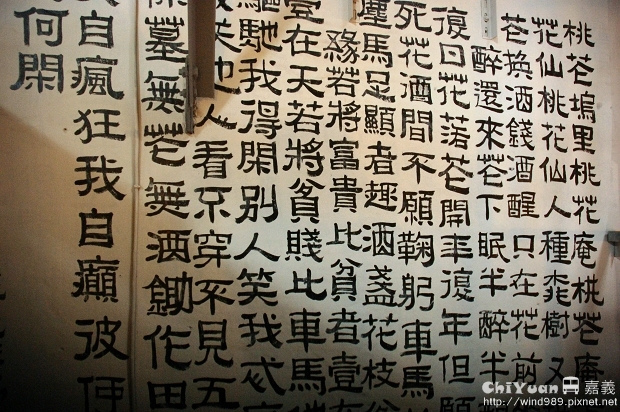 桃芲塢里桃花庵桃芲庵
花仙桃花仙人種桃樹又
芲換酒錢酒醒只在花前
醉還來芲下眠半醉半
復日花落芲開年復年但願
死花酒間不願鞠躬車馬
塵馬足顯者趣酒盞花枝
緣若將富貴比貧者壹
壹在天若將貧賤比車馬
驅馳我得閑別人笑我忒
他人看不穿不見五
墓無芲無酒鋤作田
自瘋狂我自癲彼
何閑
ChiYuan 嘉義
http://wind989.pixnet.net